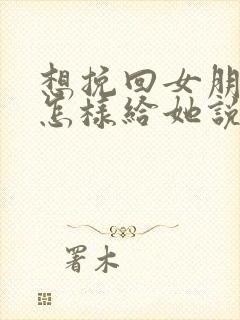 想挽回女朋
怎樣給她說
署木